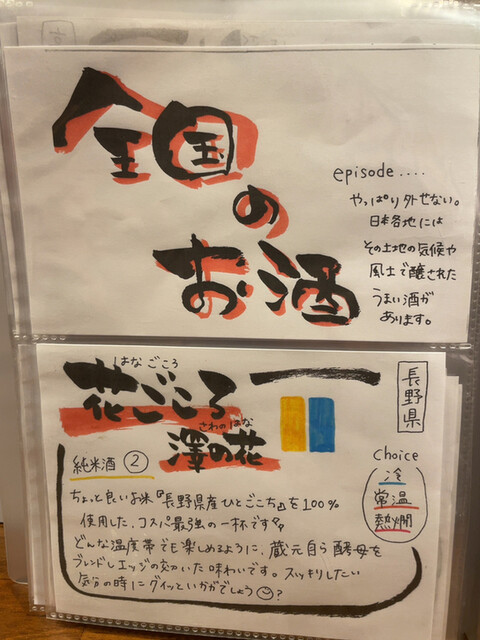 全国
の
お酒
episode....
やっぱり外せない。
日本各地には
その土地の気候や
風土で醸された
うまい酒が
あります。
はなごころ
花ごころ
一
さわのはな
澤の花
長野県
純米酒 ②
Choice
冷
常温
熱燗
ちょっと良いお米『長野県産ひとごこち』を100%
使用した、コスパ最強の一杯です
どんな温度帯でも楽しめるように、蔵元自ら酵母を
ブレンドしエッジの効いた味わいです。スッキリしたい
気分の時にグイッといかがでしょう?